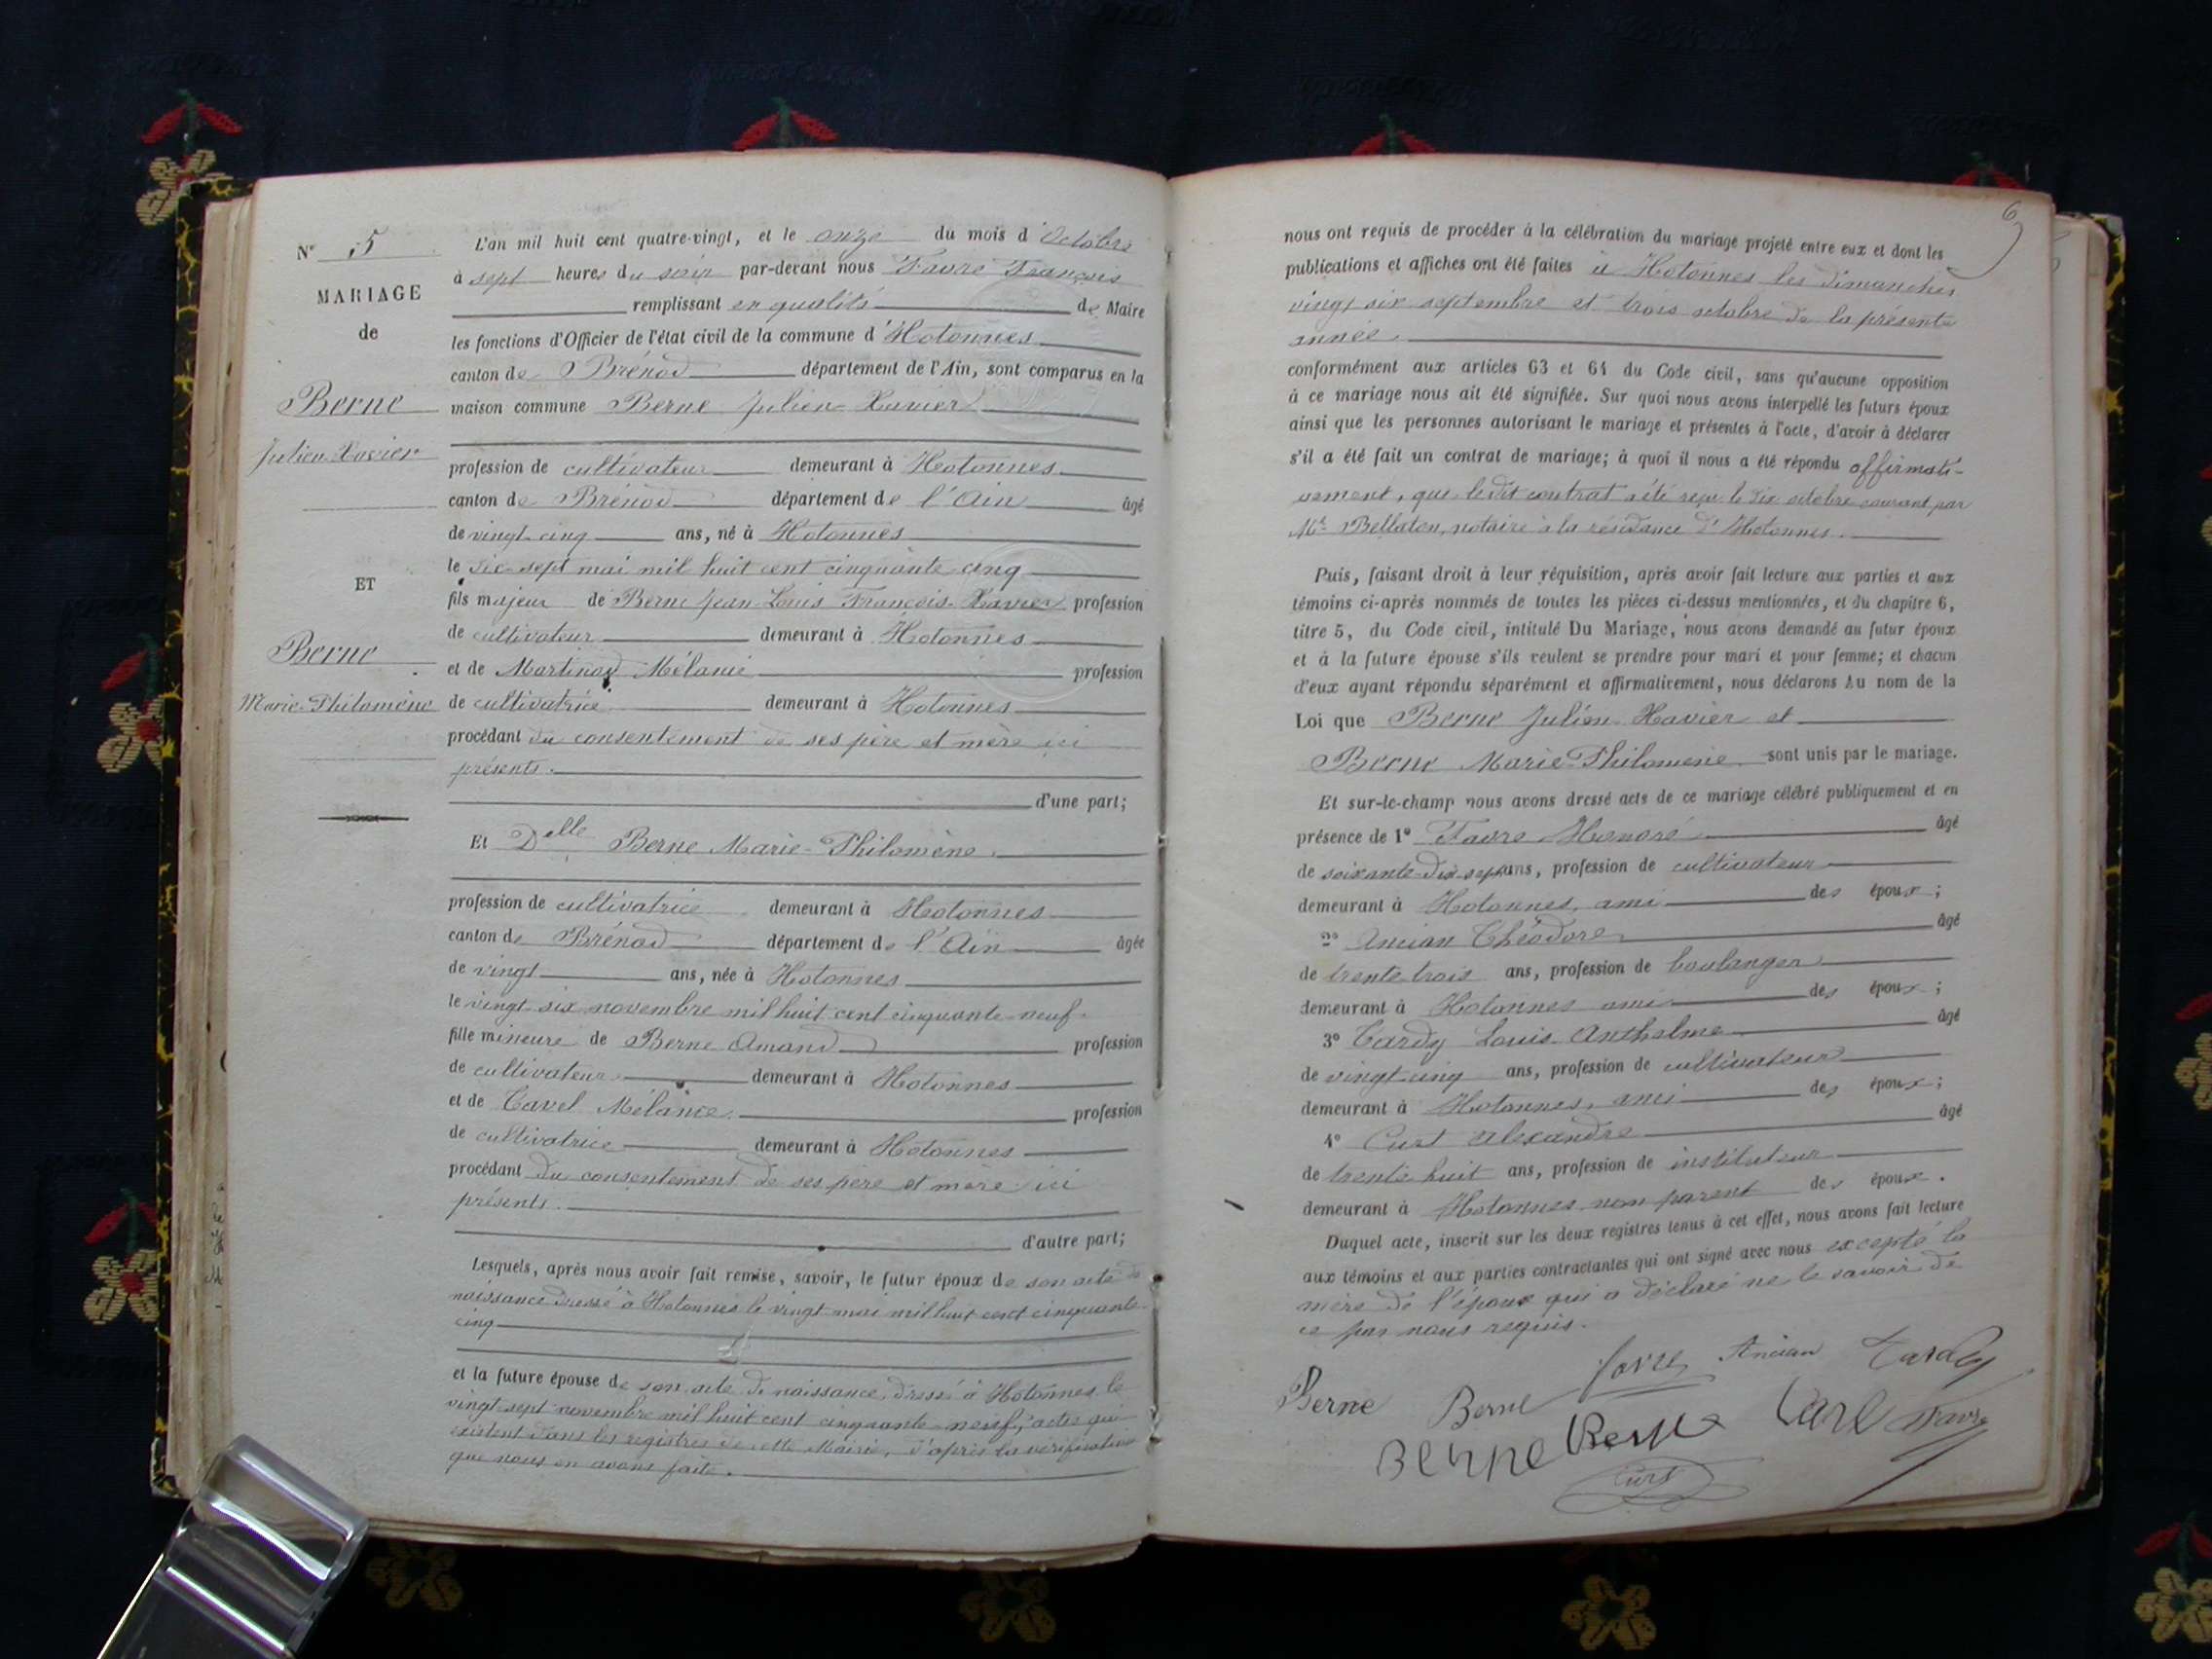 N° 5
MARIAGE
de
Berne
Julien Xavier
ET
Berne
Marie-Philomène
L'an mil huit cent quatre-vingt, et le onze du mois d'Octobre
à sept heures du soir par-devant nous Favre François
remplissant en qualité de Maire
les fonctions d'Officier de l'état civil de la commune d'Hotonnes
canton de Brénod département de l'Ain, sont comparus en la
maison commune Berne Julien Xavier
profession de cultivateur demeurant à Hotonnes
canton de Brénod département de l'Ain âgé
de vingt-cinq ans, né à Hotonnes
le dix-sept mai mil huit cent cinquante cinq
fils majeur de Berne Jean-Louis François-Xavier profession
de cultivateur demeurant à Hotonnes
et de Martinod Mélanie profession
de cultivatrice demeurant à Hotonnes
procédant du consentement de ses père et mère ici
présents.
d'une part;
Et Delle Berne Marie-Philomène.
profession de cultivatrice demeurant à Hotonnes
canton de Brénod département de l'Ain âgée
de vingt ans, née à Hotonnes
le vingt-six novembre mil huit cent cinquante-neuf.
fille mineure de Berne Amand profession
de cultivateur demeurant à Hotonnes
et de Cavel Mélanie. profession
de cultivatrice demeurant à Hotonnes
procédant du consentement de ses père et mère ici
présents.
d'autre part;
Lesquels, après nous avoir fait remise, savoir, le futur époux de son acte de
naissance dressé à Hotonnes le vingt mai mil huit cent cinquante-
cinq
et la future épouse de son acte de naissance, dressé à Hotonnes le
vingt sept novembre mil huit cent cinquante-neuf; actes qui
existent dans les registres de cette Mairie, d'après la vérification
que nous en avons faite.
6
nous ont requis de procéder à la célébration du mariage projeté entre eux et dont les
publications et affiches ont été faites à Hotonnes les dimanches
vingt six septembre et trois octobre de la présente
année.
conformément aux articles 63 et 64 du Code civil, sans qu'aucune opposition
à ce mariage nous ait été signifiée. Sur quoi nous avons interpellé les futurs époux
ainsi que les personnes autorisant le mariage et présentes à l'acte, d'avoir à déclarer
s'il a été fait un contrat de mariage; à quoi il nous a été répondu affirmati-
vement, que ledit contrat a été reçu le six octobre courant par
Mtre Bellaton, notaire à la résidance d'Hotonnes.
Puis, faisant droit à leur réquisition, après avoir fait lecture aux parties et aux
témoins ci-après nommés de toutes les pièces ci-dessus mentionnées, et du chapitre 6,
titre 5, du Code civil, intitulé Du Mariage, nous avons demandé au futur époux
et à la future épouse s'ils veulent se prendre pour mari et pour femme; et chacun
d'eux ayant répondu séparément et affirmativement, nous déclarons Au nom de la
Loi que Berne Julien Xavier et
Berne Marie-Philomène sont unis par le mariage.
Et sur-le-champ nous avons dressé acte de ce mariage célébré publiquement et en
présence de 1° Favre Honoré âgé
de soixante-dix-sept ans, profession de cultivateur
demeurant à Hotonnes, ami des époux;
2° Ancian Théodore âgé
de trente trois ans, profession de boulanger
demeurant à Hotonnes ami des époux;
3° Tardy Louis Anthelme âgé
de vingt-cinq ans, profession de cultivateur
demeurant à Hotonnes, ami des époux;
4° Curt Alexandre âgé
de trente huit ans, profession de instituteur
demeurant à Hotonnes non parent des époux.
Duquel acte, inscrit sur les deux registres tenus à cet effet, nous avons fait lecture
aux témoins et aux parties contractantes qui ont signé avec nous excepté la
mère de l'époux qui a déclaré ne le savoir de
ce par nous requis.
Berne Berne Favre Ancian Tardy
Berne Berne Favre
Curt